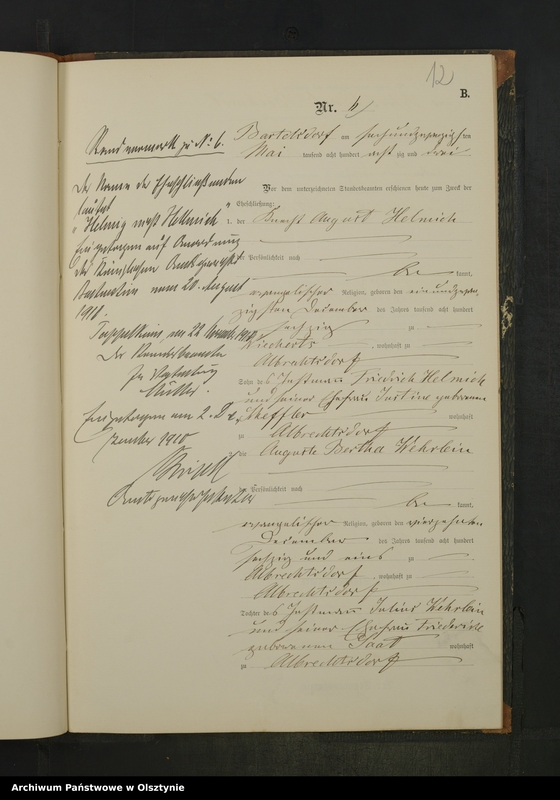 12
B.
Nr. 6
Bartelsdorf am sechsundzwanzigsten
Mai tausend acht hundert acht zig und drei
Vor dem unterzeichneten Standesbeamten erschienen heute zum Zweck der
Eheschließung:
1. der Knecht August Helmich
der Persönlichkeit nach
be kannt,
evangelischer Religion, geboren den einundzwan-
zigsten December des Jahres tausend acht hundert
sechzig zu
wohnhaft zu
Albrechtsdorf
Sohn des Instmann Friedrich Helmich
und seiner Ehefrau Justine geborenen
Steffler wohnhaft
zu Albrechtsdorf
2. die Auguste Bertha Wehrlein
der Persönlichkeit nach
be kannt,
evangelischer Religion, geboren den vierzehnten
December des Jahres tausend acht hundert
sechzig und eins zu
Albrechtsdorf, wohnhaft zu
Albrechtsdorf
Tochter des Instmann Julius Wehrlein
und seiner Ehefrau Friederike
geborenen Saat wohnhaft
zu Albrechtsdorf
Randvermerk zu N: 6.
Der Name der Eheschließenden
lautet
"Helmig nicht Helmich"
Eingetragen auf Anordnung
des Königlichen Amtsgerichts
Bartenstein vom 20. August
1910.
Der Standesbeamte
In Vertretung
Müller.
Eingetragen am 2. De-
zember 1910
Archiwum Państwowe w Olsztynie
Archiwum Państwowe w Olsztynie